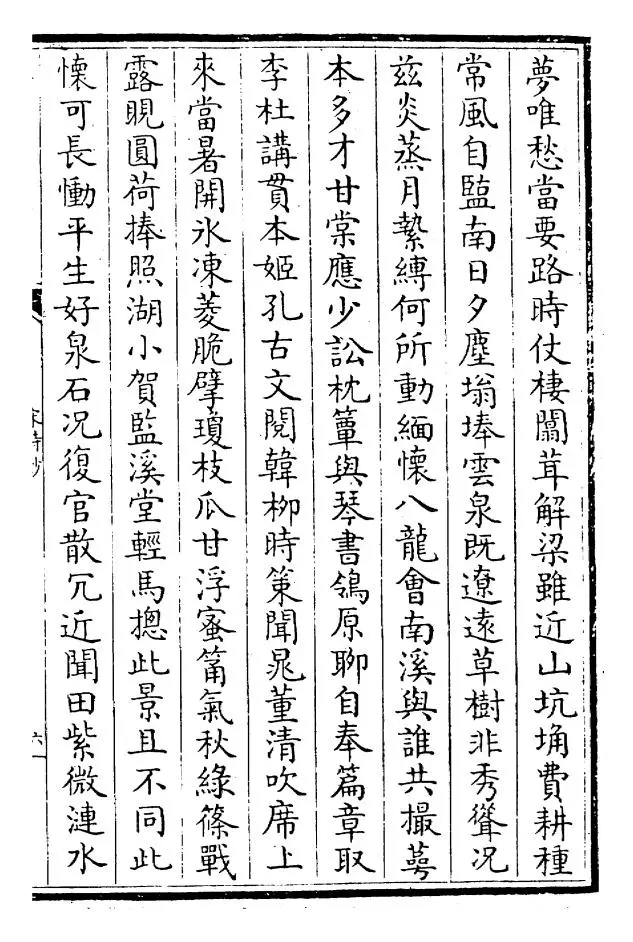 夢唯愁當要路時仗棲闒茸解梁雖近山坑埆費耕種
常風自監南日夕塵塕埲雲泉既遼遠草樹非秀聳况
兹炎蒸月縶縛何所動緬懷八龍會南溪與誰共撮蕚
本多才甘棠應少訟枕簟與琴書鴒原聊自奉篇章取
李杜講貫本姬孔古文閱韓柳時策聞晁董清吹席上
來當暑開氷凍菱脆擘瓊枝瓜甘浮蜜筩氣秋綠篠戰
露晛圓荷捧照湖小賀監溪堂輕馬摠此景且不同此
懐可長慟平生好泉石况復官散冗近聞田紫微漣水
宋詩抄
六